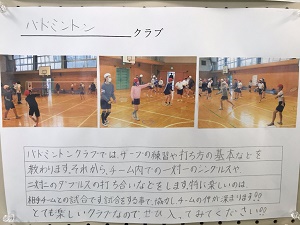 バドミントン クラブ
バドミントンクラブでは、サーブの練習や打ち方の基本などを
教わります。それから、チーム内での一対一のシングルスや
二対二のダブルスの打ち合いなどをします。特に楽しいのは
相手チームとの試合です。試合をする事で、協力しチームの仲が深まります!!
とても楽しいクラブなので、ぜひ入ってみてください!!